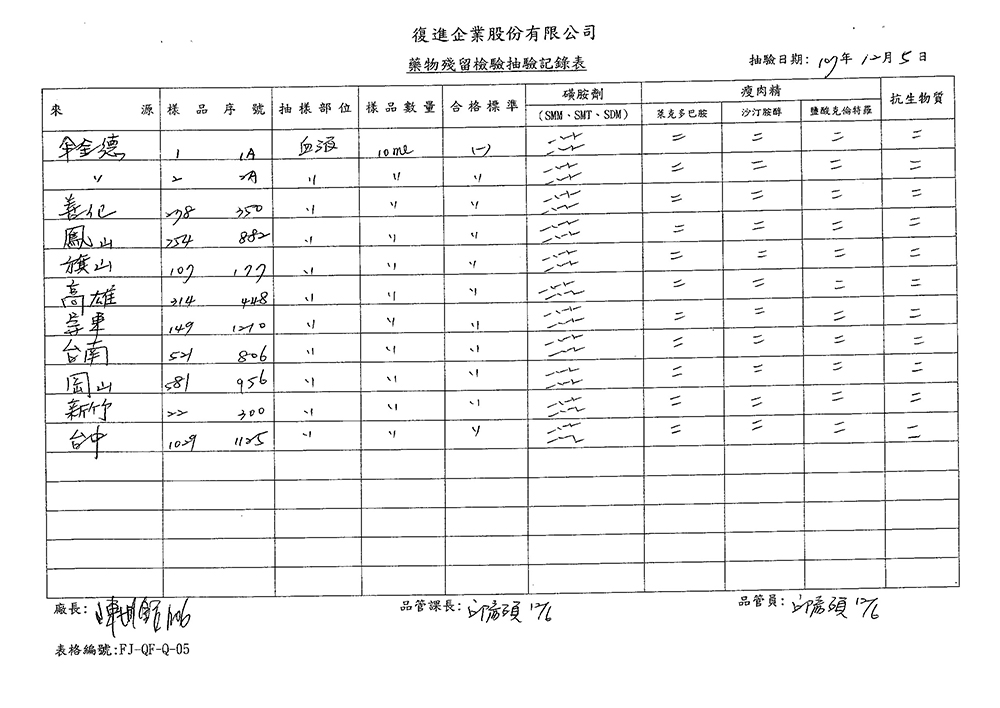 復進企業股份有限公司
藥物殘留檢驗抽驗記錄表
抽驗日期: 107年 12月 5日
來源 樣品序號 抽樣部位 樣品數量 合格標準 磺胺劑 (SMM、SMT、SDM) 瘦肉精 萊克多巴胺 沙汀胺醇 鹽酸克倫特羅 抗生物質
金德 1 1A 血液 10ml (-) = = = =
〃 2 2A 〃 〃 〃 = = = =
善化 238 350 〃 〃 〃 = = = =
鳳山 254 882 〃 〃 〃 = = = =
旗山 107 177 〃 〃 〃 = = = =
高雄 314 448 〃 〃 〃 = = = =
屏東 149 1210 〃 〃 〃 = = = =
台南 521 806 〃 〃 〃 = = = =
岡山 581 956 〃 〃 〃 = = = =
新竹 22 300 〃 〃 〃 = = = =
台中 1029 1125 〃 〃 〃 = = = =
廠長: 陳 品管課長: 邱 碩 12/6 品管員: 邱 碩 12/6
表格編號:FJ-QF-Q-05